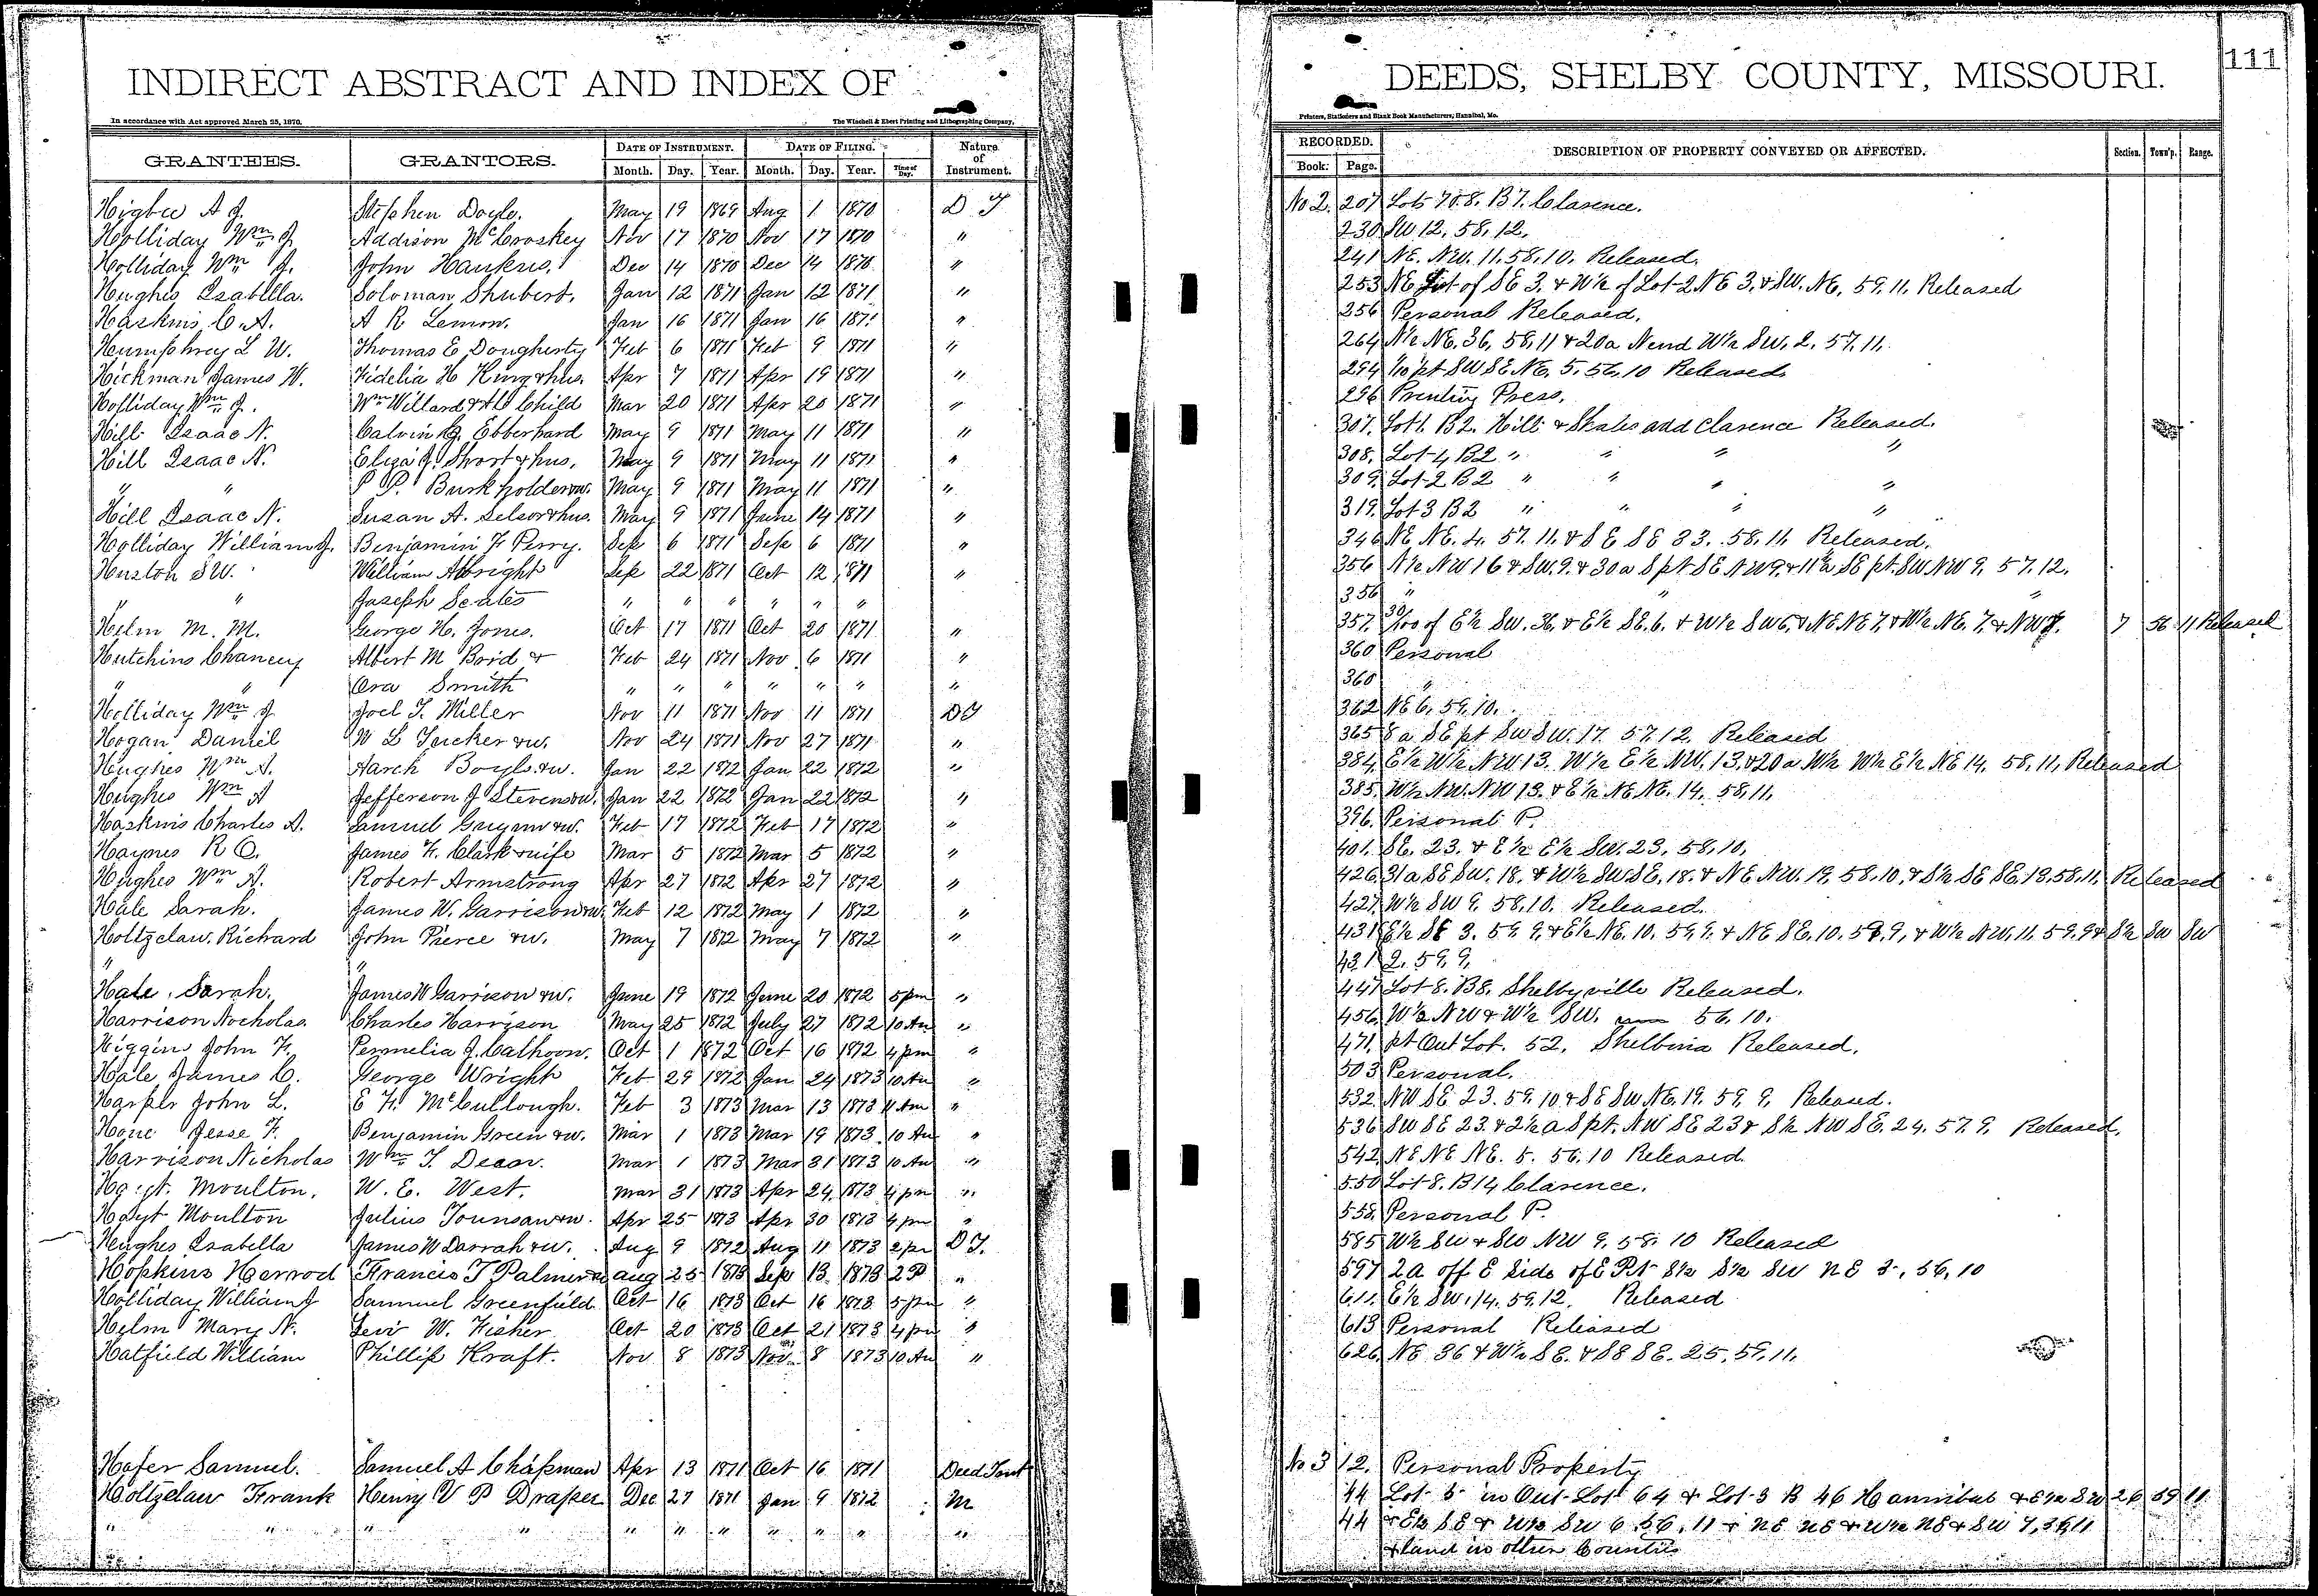 INDIRECT ABSTRACT AND INDEX OF DEEDS, SHELBY COUNTY, MISSOURI. 111
In accordance with Act approved March 25, 1870. The Winchell & Ebert Printing and Lithographing Company, Printers, Stationers and Blank Book Manufacturers, Hannibal, Mo.
GRANTEES. GRANTORS. DATE OF INSTRUMENT. DATE OF FILING. Nature of Instrument. RECORDED. DESCRIPTION OF PROPERTY CONVEYED OR AFFECTED. Section. Town'p. Range.
Month. Day. Year. Month. Day. Year. Time of Day. Book. Page.
Higbee A J. Stephen Doyle. May 19 1869 Aug 1 1870 D T No 2. 207 Lots 7 & 8. B 7. Clarence.
Holliday Wm J Addison McCroskey Nov 17 1870 Nov 17 1870 " 230 SW 12, 58, 12.
Holliday Wm J. John Hankins. Dec 14 1870 Dec 14 1870 " 241 NE. NW. 11. 58. 10. Released.
Hughes Isabella. Soloman Shubert. Jan 12 1871 Jan 12 1871 " 253 NE Lot of SE 3. & W½ of Lot 2 NE 3, & SW. NE, 59, 11, Released
Haskins C. A. A R Lemon. Jan 16 1871 Jan 16 1871 " 256 Personal Released.
Humphrey L W. Thomas E Dougherty Feb 6 1871 Feb 9 1871 " 264 N½ NE. 36, 58, 11 & 20a N end W½ SW. 2. 57. 11.
Hickman James W. Fidelia H King & hus. Apr 7 1871 Apr 19 1871 " 294 1/10 pt SW SE NE. 5. 56. 10 Released.
Holliday Wm J. Wm Willard & A C Child Mar 20 1871 Apr 20 1871 " 296 Printing Press.
Hill Isaac N. Calvin G. Ebberhard May 9 1871 May 11 1871 " 307. Lot 1. B 2. Hill & Skales add Clarence Released.
Hill Isaac N. Eliza J. Short & hus. May 9 1871 May 11 1871 " 308. Lot 4 B 2 " " " "
" " P P. Burkholder & w. May 9 1871 May 11 1871 " 309. Lot 2 B 2 " " " "
Hill Isaac N. Susan A. Selsor & hus. May 9 1871 June 14 1871 " 319. Lot 3 B 2 " " " "
Holliday William J. Benjamin F Perry. Sep 6 1871 Sep 6 1871 " 346 NE NE. 4. 57. 11. & SE SE 33. 58. 11. Released.
Huston S W. William Albright Sep 22 1871 Oct 12 1871 " 356 N½ NW 16 & SW. 9. & 30a S pt SE NW 9. & 11½a SE pt. SW NW 9. 57. 12.
" " Joseph Scates " " " " " " 356 " " "
Helm M. M. George H. Jones. Oct 17 1871 Oct 20 1871 " 357. 30/100 of E½ SW. 36. & E½ SE. 6. & W½ SW 6, & NE NE 7, & W½ NE. 7, & NW 7. 7 56 11 Released
Hutchins Chancey Albert M Boid & Feb 24 1871 Nov 6 1871 " 360 Personal
" " Ora Smith " " " " " " " 360 "
Holliday Wm J Joel T. Miller Nov 11 1871 Nov 11 1871 D T 362 NE 6, 59, 10.
Hogan Daniel W L Tucker & w. Nov 24 1871 Nov 27 1871 " 365 8a SE pt SW SW. 17. 57. 12. Released
Hughes Wm A. Aarch Boyls & w. Jan 22 1872 Jan 22 1872 " 384. E½ W½ NW 13. W½ E½ NW. 13. & 20a W½ W½ E½ NE 14. 58. 11, Released
Hughes Wm A Jefferson J Stevens & w. Jan 22 1872 Jan 22 1872 " 385. W½ NW. NW 13. & E½ NE NE. 14. 58. 11.
Haskins Charles A. Samuel & w. Feb 17 1872 Feb 17 1872 " 396. Personal P.
Haynes R C. James F. Clark & wife Mar 5 1872 Mar 5 1872 " 401. SE. 23. & E½ E½ SW. 23, 58, 10,
Hughes Wm A. Robert Armstrong Apr 27 1872 Apr 27 1872 " 426. 31a SE SW. 18. & W½ SW SE. 18. & NE NW. 19. 58. 10, & S½ SE SE. 13. 58. 11. Released
Hale Sarah. James W. Garrison & w. Feb 12 1872 May 1 1872 " 427. W½ SW 9. 58. 10. Released.
Holtzclaw. Richard John Pierce & w. May 7 1872 May 7 1872 " 431 E½ SE 3. 59. 9. & E½ NE. 10. 59. 9. & NE SE. 10. 59. 9, & W½ NW. 11. 59. 9 & S½ SW SW
" " 431 2. 59, 9,
Hale, Sarah. James W Garrison & w. June 19 1872 June 20 1872 5 pm " 447 Lot 8. B 8. Shelbyville Released.
Harrison Nocholas. Charles Harrison May 25 1872 July 27 1872 10 Am " 456. W½ NW & W½ SW. 56. 10.
Higgins John F. Permelia J. Calhoon. Oct 1 1872 Oct 16 1872 4 pm " 471. pt Out Lot. 52. Shelbina Released.
Hale James C. George Wright Feb 29 1872 Jan 24 1873 10 Am " 503 Personal.
Harper John L. E F. McCullough. Feb 3 1873 Mar 13 1873 11 Am " 532 NW SE 23. 59. 10 & SE SW NE. 19. 59. 9. Released.
Hone Jesse F. Benjamin Green & w. Mar 1 1873 Mar 19 1873. 10 Am " 536 SW SE 23. & 2½ a S pt. NW SE 23 & S½ NW SE. 24. 57. 9. Released.
Harrison Nicholas Wm T. Deeor. Mar 1 1873 Mar 31 1873 10 Am " 542 NE NE NE. 5. 56. 10 Released.
Hoyt. Moulton. W. E. West. Mar 31 1873 Apr 24. 1873 4 pm " 550 Lot 8. B 14 Clarence.
Hoyt Moulton Julius Tounsan & w. Apr 25 1873 Apr 30 1873 4 pm " 558. Personal P.
Hughes Isabella James W Darrah & w. Aug 9 1872 Aug 11 1873 2 pm D T. 585 W½ SW & SW NW 9. 58. 10 Released
Hopkins Harrod Francis T Palmer & w Aug 25 1873 Sep 13 1873 2 P " 597 2a off E Side of E Pt S½ S½ SW NE 3, 56, 10
Holliday William J Samuel Greenfield. Oct 16 1873 Oct 16 1873 5 pm " 611. E½ SW. 14. 59. 12. Released
Helm Mary N. Levi W. Fisher Oct 20 1873 Oct 21 1873 4 pm " 613 Personal Released
Hatfield William Phillip Kraft. Nov 8 1873 Nov. 8 1873 10 Am " 626. NE 36 & W½ SE. & SE SE. 25. 59. 11.
Hafer Samuel. Samuel A Chapman Apr 13 1871 Oct 16 1871 Deed Trust No 3 12. Personal Property
Holtzclaw Frank Henry V P Draper Dec 27 1871 Jan 9 1872 M 44 Lot 5 in Out-Lot 64 & Lot 3 B 46 Hannibal & E½ SW 26 59 11
" " " " " " " " " " " 44 & E½ SE & W½ SW 6. 56. 11 & NE NE & W½ NE & SW 7, 56, 11
& land in other Counties